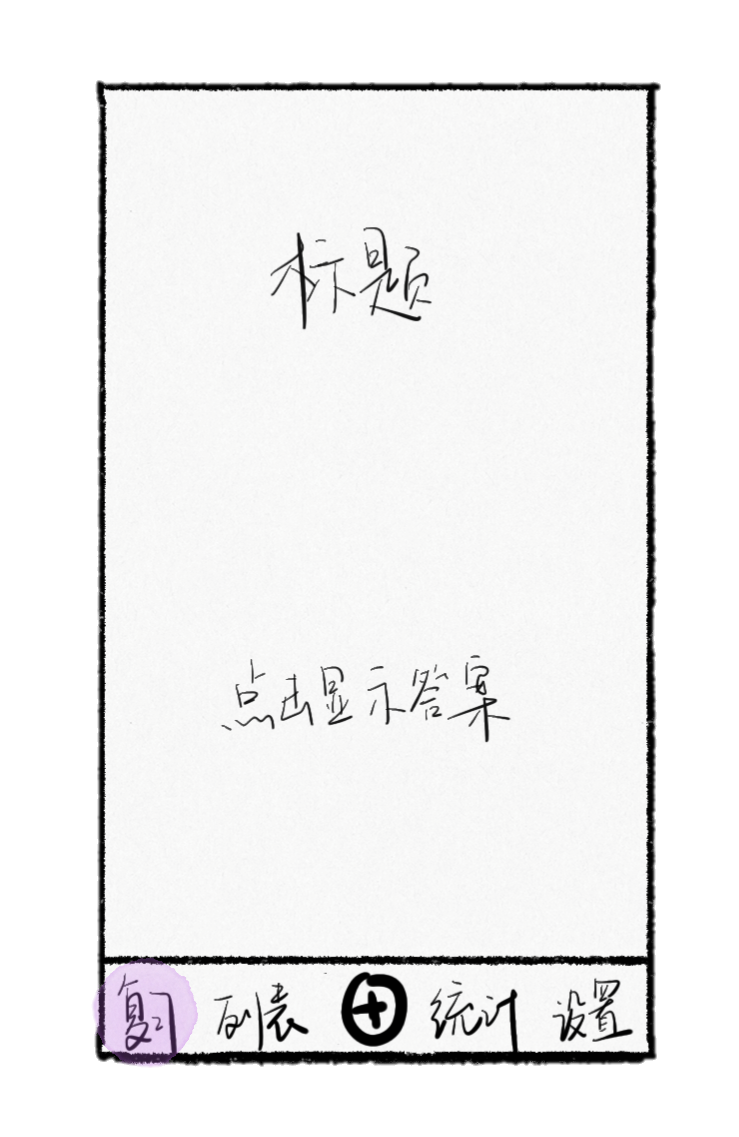 标题
点击显示答案
复习 列表 + 统计 设置